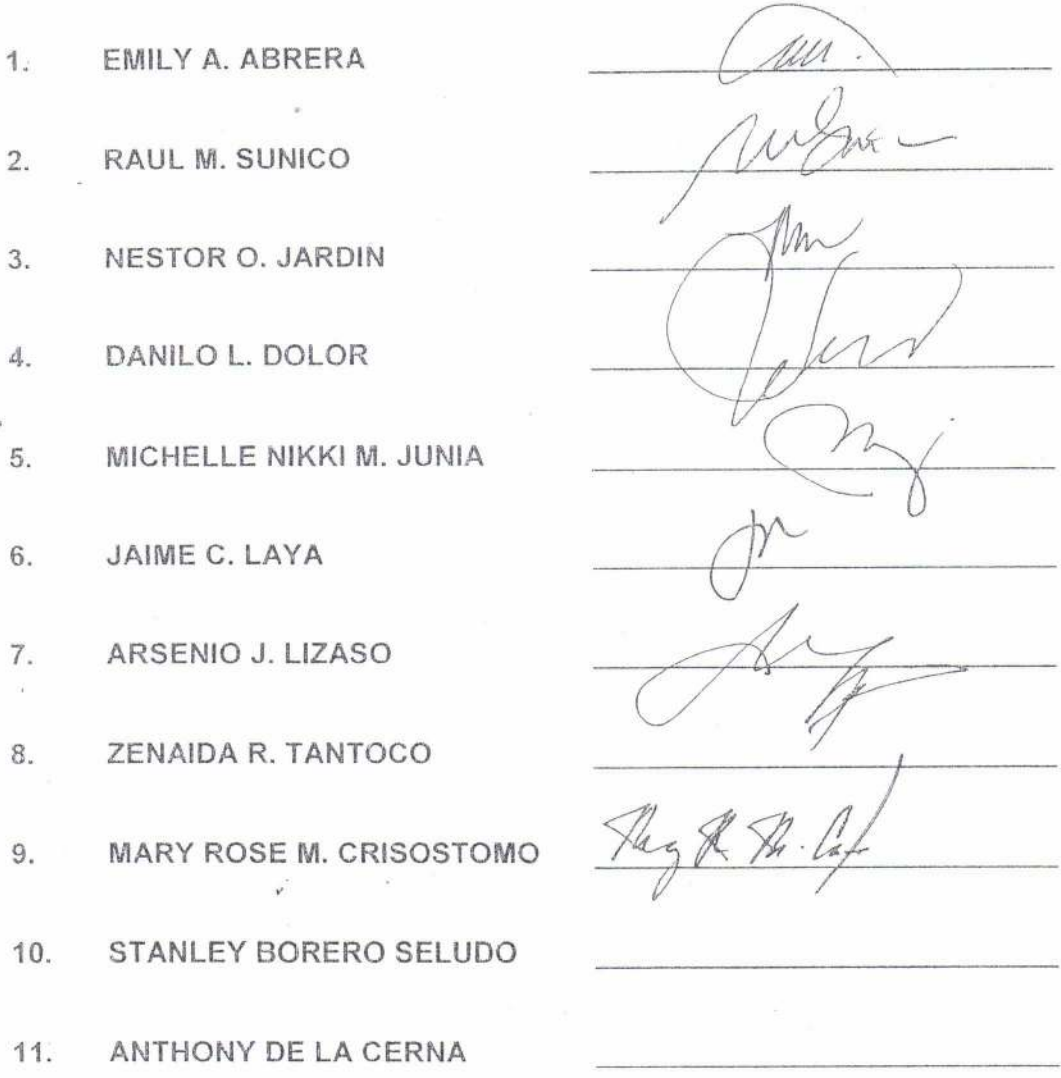 1. EMILY A. ABRERA
2. RAUL M. SUNICO
3. NESTOR O. JARDIN
4. DANILO L. DOLOR
5. MICHELLE NIKKI M. JUNIA
6. JAIME C. LAYA
7. ARSENIO J. LIZASO
8. ZENAIDA R. TANTOCO
9. MARY ROSE M. CRISOSTOMO
10. STANLEY BORERO SELUDO
11. ANTHONY DE LA CERNA